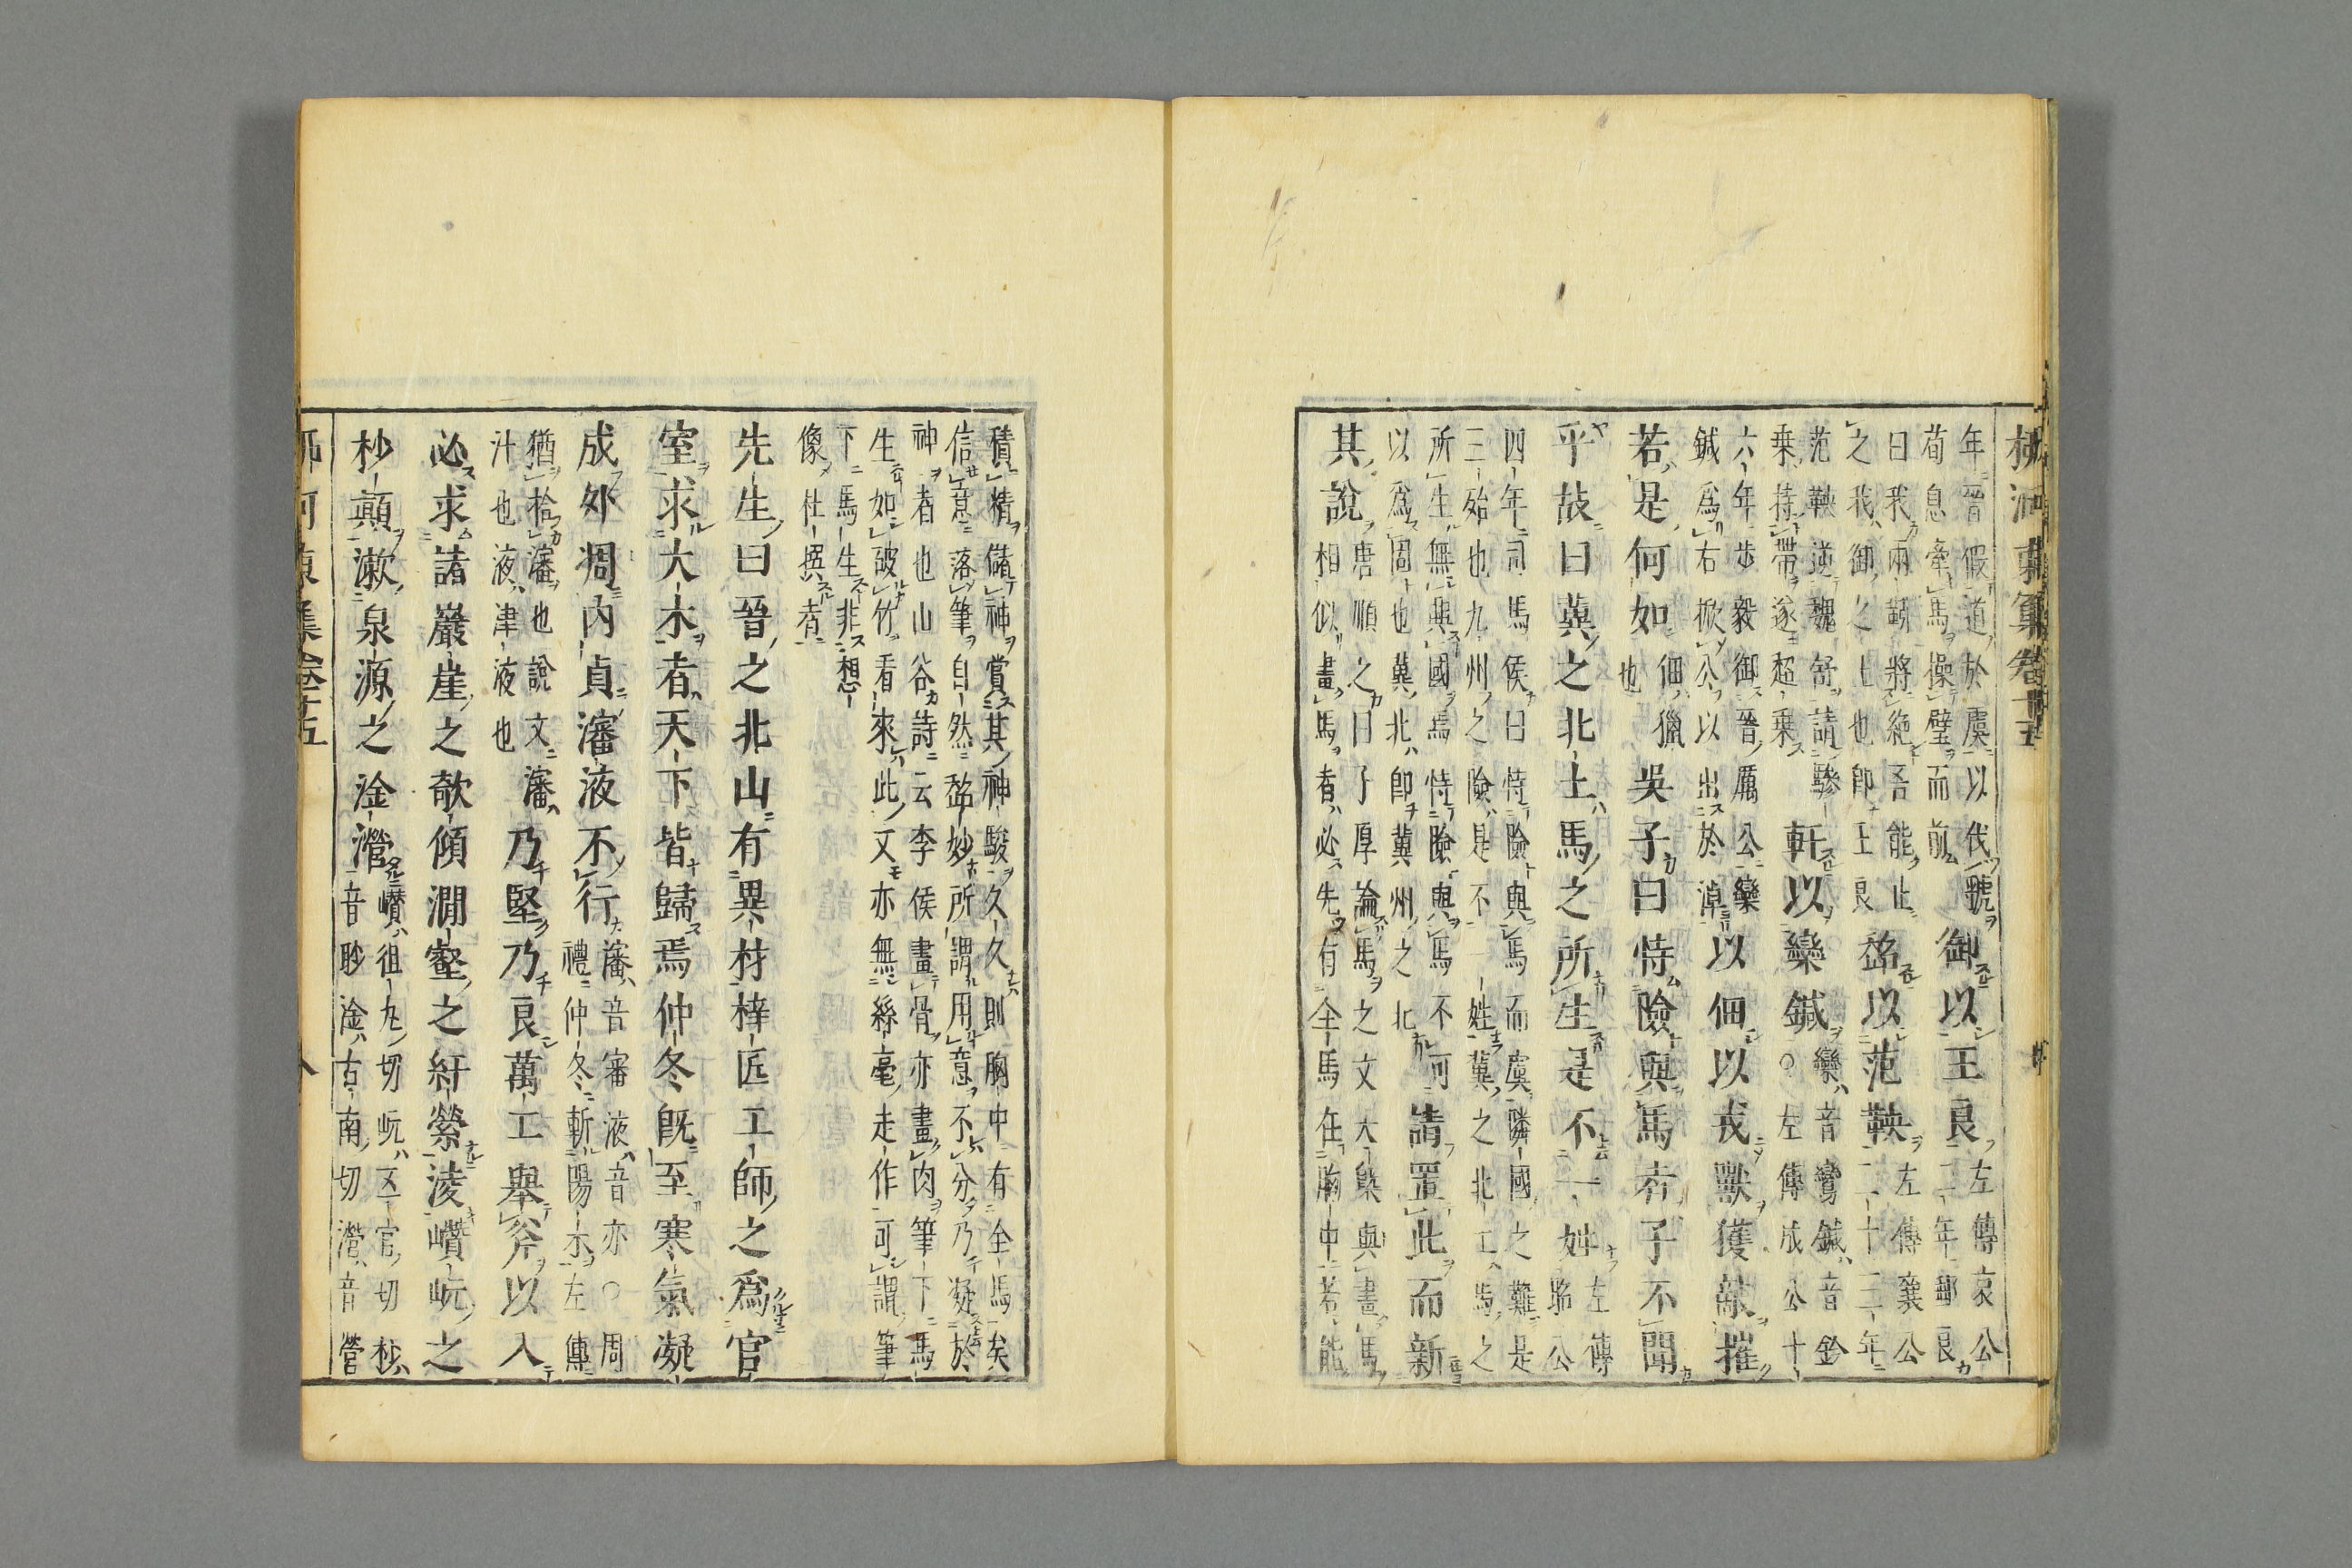 柳河東集卷十五
年晉假道於虞以伐虢御以王良左傳哀公
荀息牽馬操璧而前 二年郵良
曰我兩靷將絶吾能止 超以范鞅左傳襄公
之我御之上也即王良 二十三年
范鞅逆魏舒請驂 軒以欒鍼欒音鸞鍼音鈐
乗持帶遂超乗 ○左傳成公十
六年歩毅御晉厲公欒 以佃以戎獸獲敵摧
鍼爲右掀公以出於淖
若是何如佃獵也 吳子曰恃險與馬者子不聞
乎故曰冀之北土馬之所生是不一姓左傳昭公
四年司馬侯曰恃險與馬而虞隣國之難是
三殆也九州之險是不一姓冀之北土馬之
所生無興國焉恃險與馬不可 請置此而新
以爲固也冀北即冀州之北
其說唐順之曰子厚論馬之文大槩與畫馬
相似畫馬者必先有全馬在胸中若能
積精儲神賞其神駿久久則胸中有全馬矣
信意落筆自然超妙所謂用意不分乃凝於
神者也山谷詩云李侯畫骨亦畫肉筆下馬
生如破竹看來此又亦無絲毫走作可謂筆
下馬生非想
像杜撰者
先生曰晉之北山有異材梓匠工師之爲官
室求大木者天下皆歸焉仲冬既至寒氣凝
成外凋内貞瀋液不行瀋音審液音亦○周
禮仲冬斬陽木左傳
猶拾瀋也說文瀋 乃堅乃良萬工舉斧以入
汁也液津液也
必求諸巖崖之欹傾澗壑之紆縈淩巑岏之
杪顛漱泉源之淦瀯巑徂丸切岏五官切杪
音眇淦古南切瀯音營
柳河東集卷十五 八